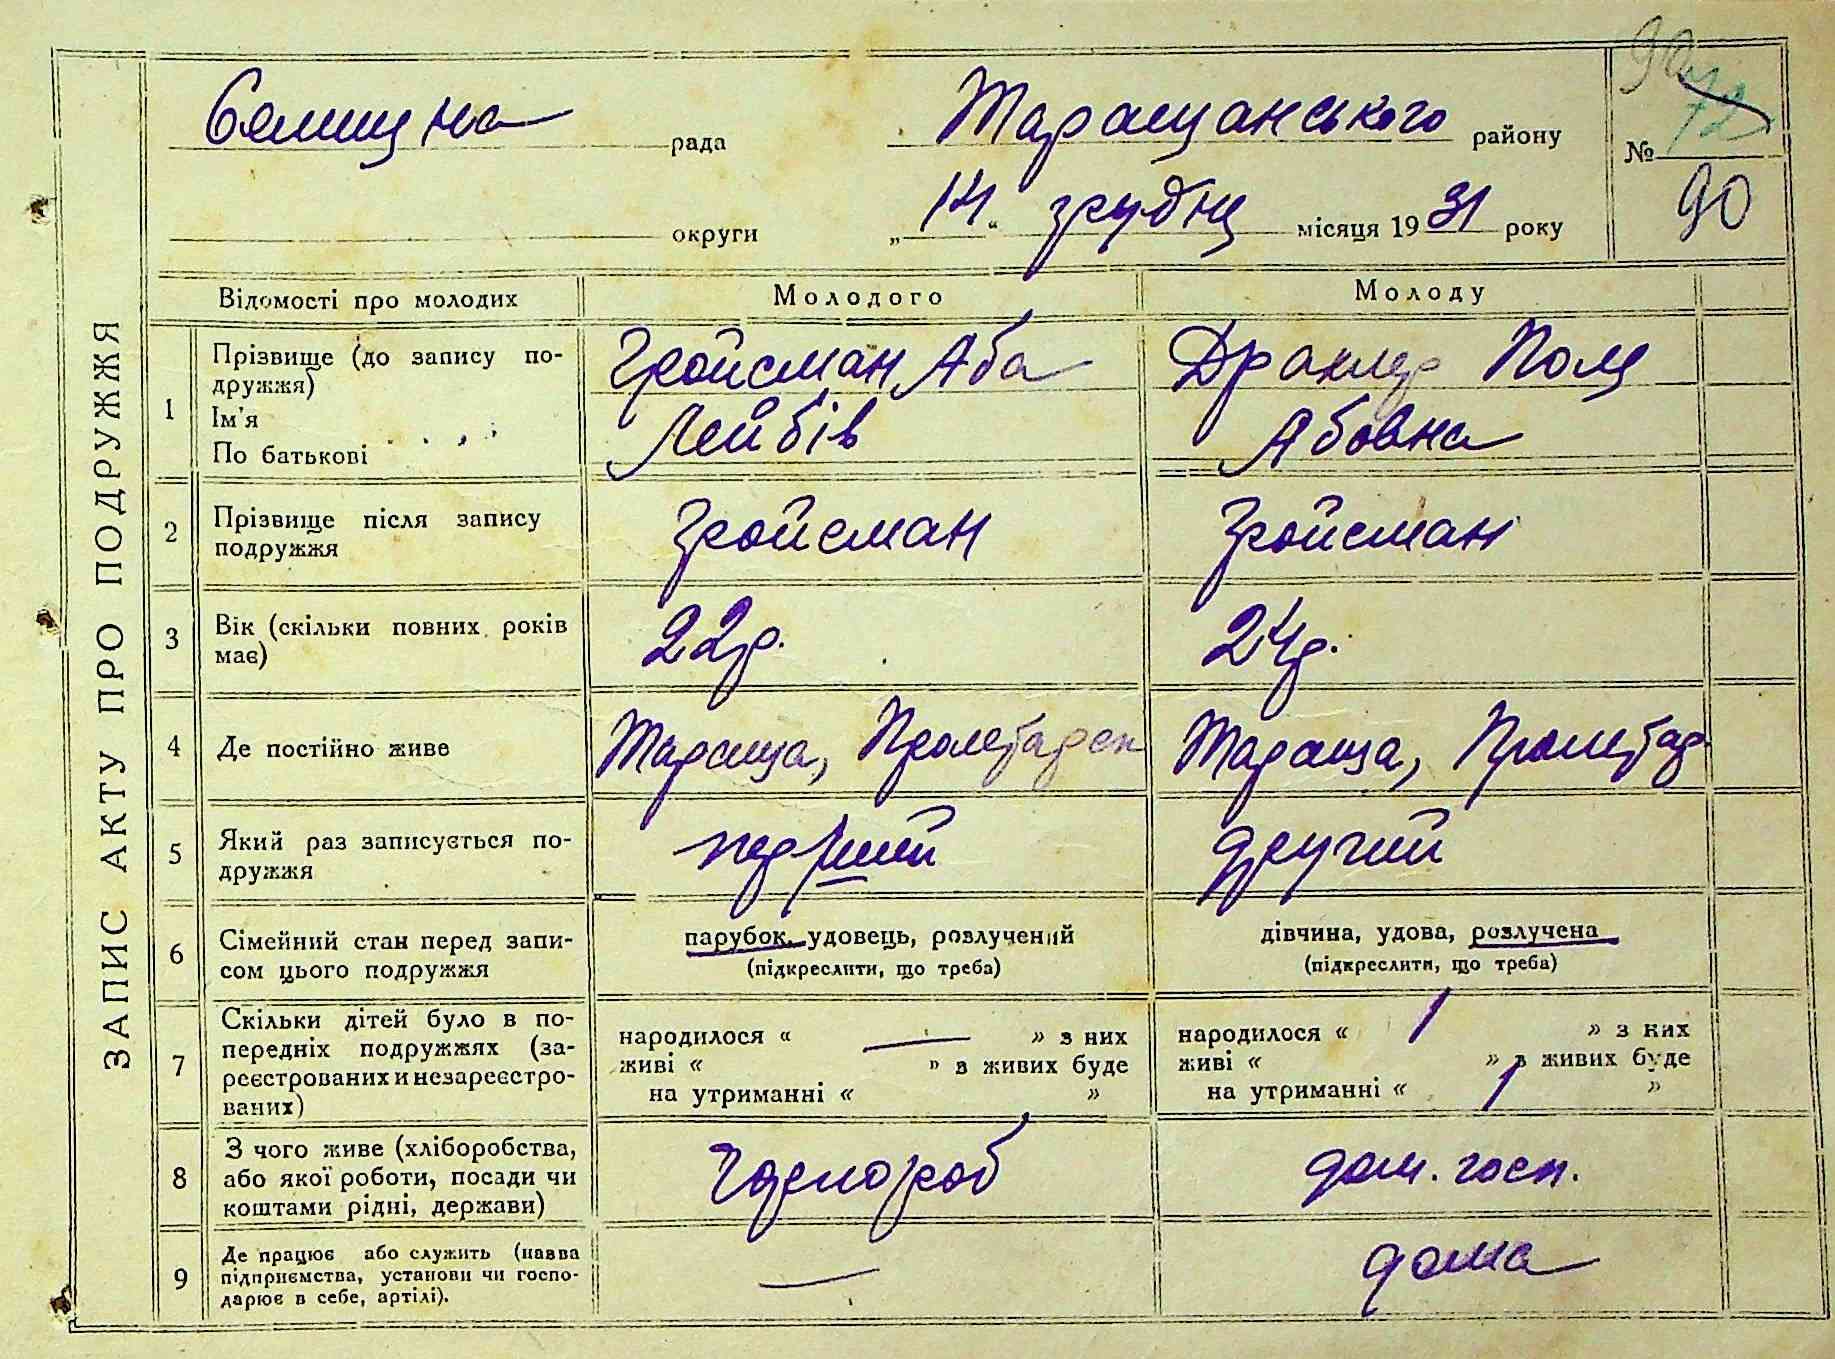 ЗАПИС АКТУ ПРО ПОДРУЖЖЯ
90
72
Селищна рада Таращанського району №
90
округи „14“ грудня місяця 1931 року
Відомості про молодих Молодого Молоду
1 Прізвище (до запису по-
дружжя)
Ім'я
По батькові
Гройсман Аба
Лейбів
Драклер Поля
Абовна
2 Прізвище після запису
подружжя
Гройсман Гройсман
3 Вік (скільки повних років
має)
22 р. 24 р.
4 Де постійно живе Тараща, Тараща,
5 Який раз записується по-
дружжя
перший другий
6 Сімейний стан перед запи-
сом цього подружжя
парубок, удовець, розлучений
(підкреслити, що треба)
дівчина, удова, розлучена
(підкреслити, що треба)
7 Скільки дітей було в по-
передніх подружжях (за-
реєстрованих и незареєстро-
ваних)
народилося « — » з них
живі « » з живих буде
на утриманні « »
народилося « 1 » з них
живі « » з живих буде
на утриманні « 1 »
8 З чого живе (хліборобства,
або якої роботи, посади чи
коштами рідні, держави)
Чорнороб дом. госп.
9 Де працює або служить (назва
підприємства, установи чи госпо-
дарює в себе, артілі).
— дома